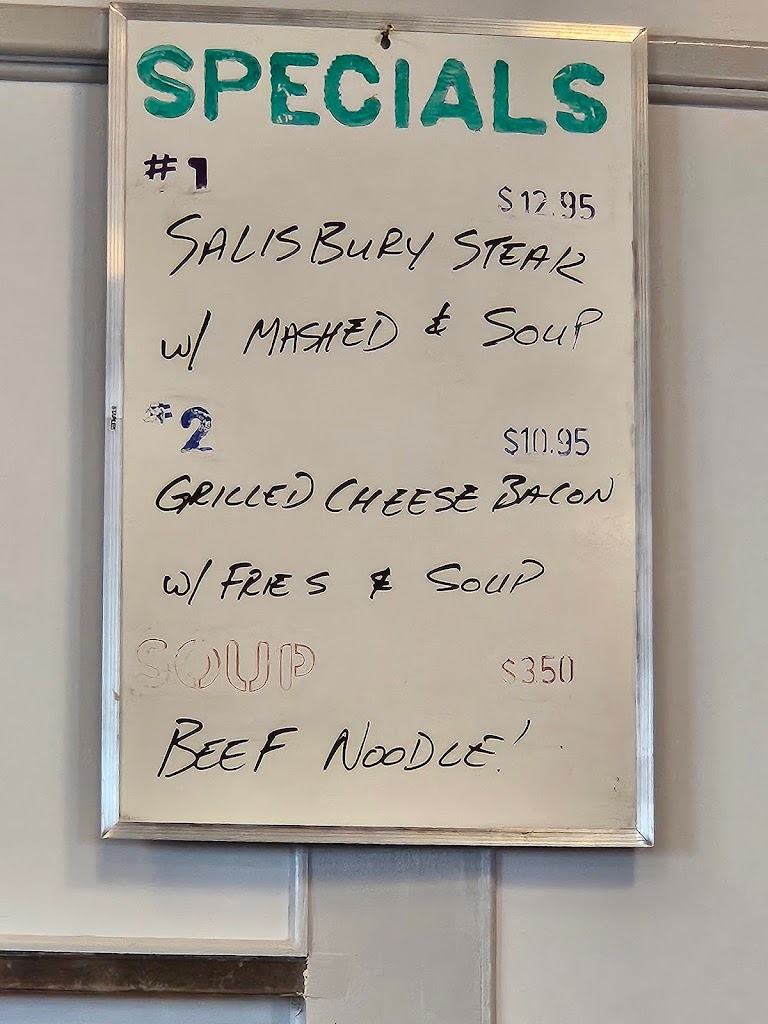 SPECIALS
#1
$12.95
SALISBURY STEAK
w/ MASHED & SOUP
#2
$10.95
GRILLED CHEESE BACON
w/ FRIES & SOUP
SOUP $3.50
BEEF NOODLE!